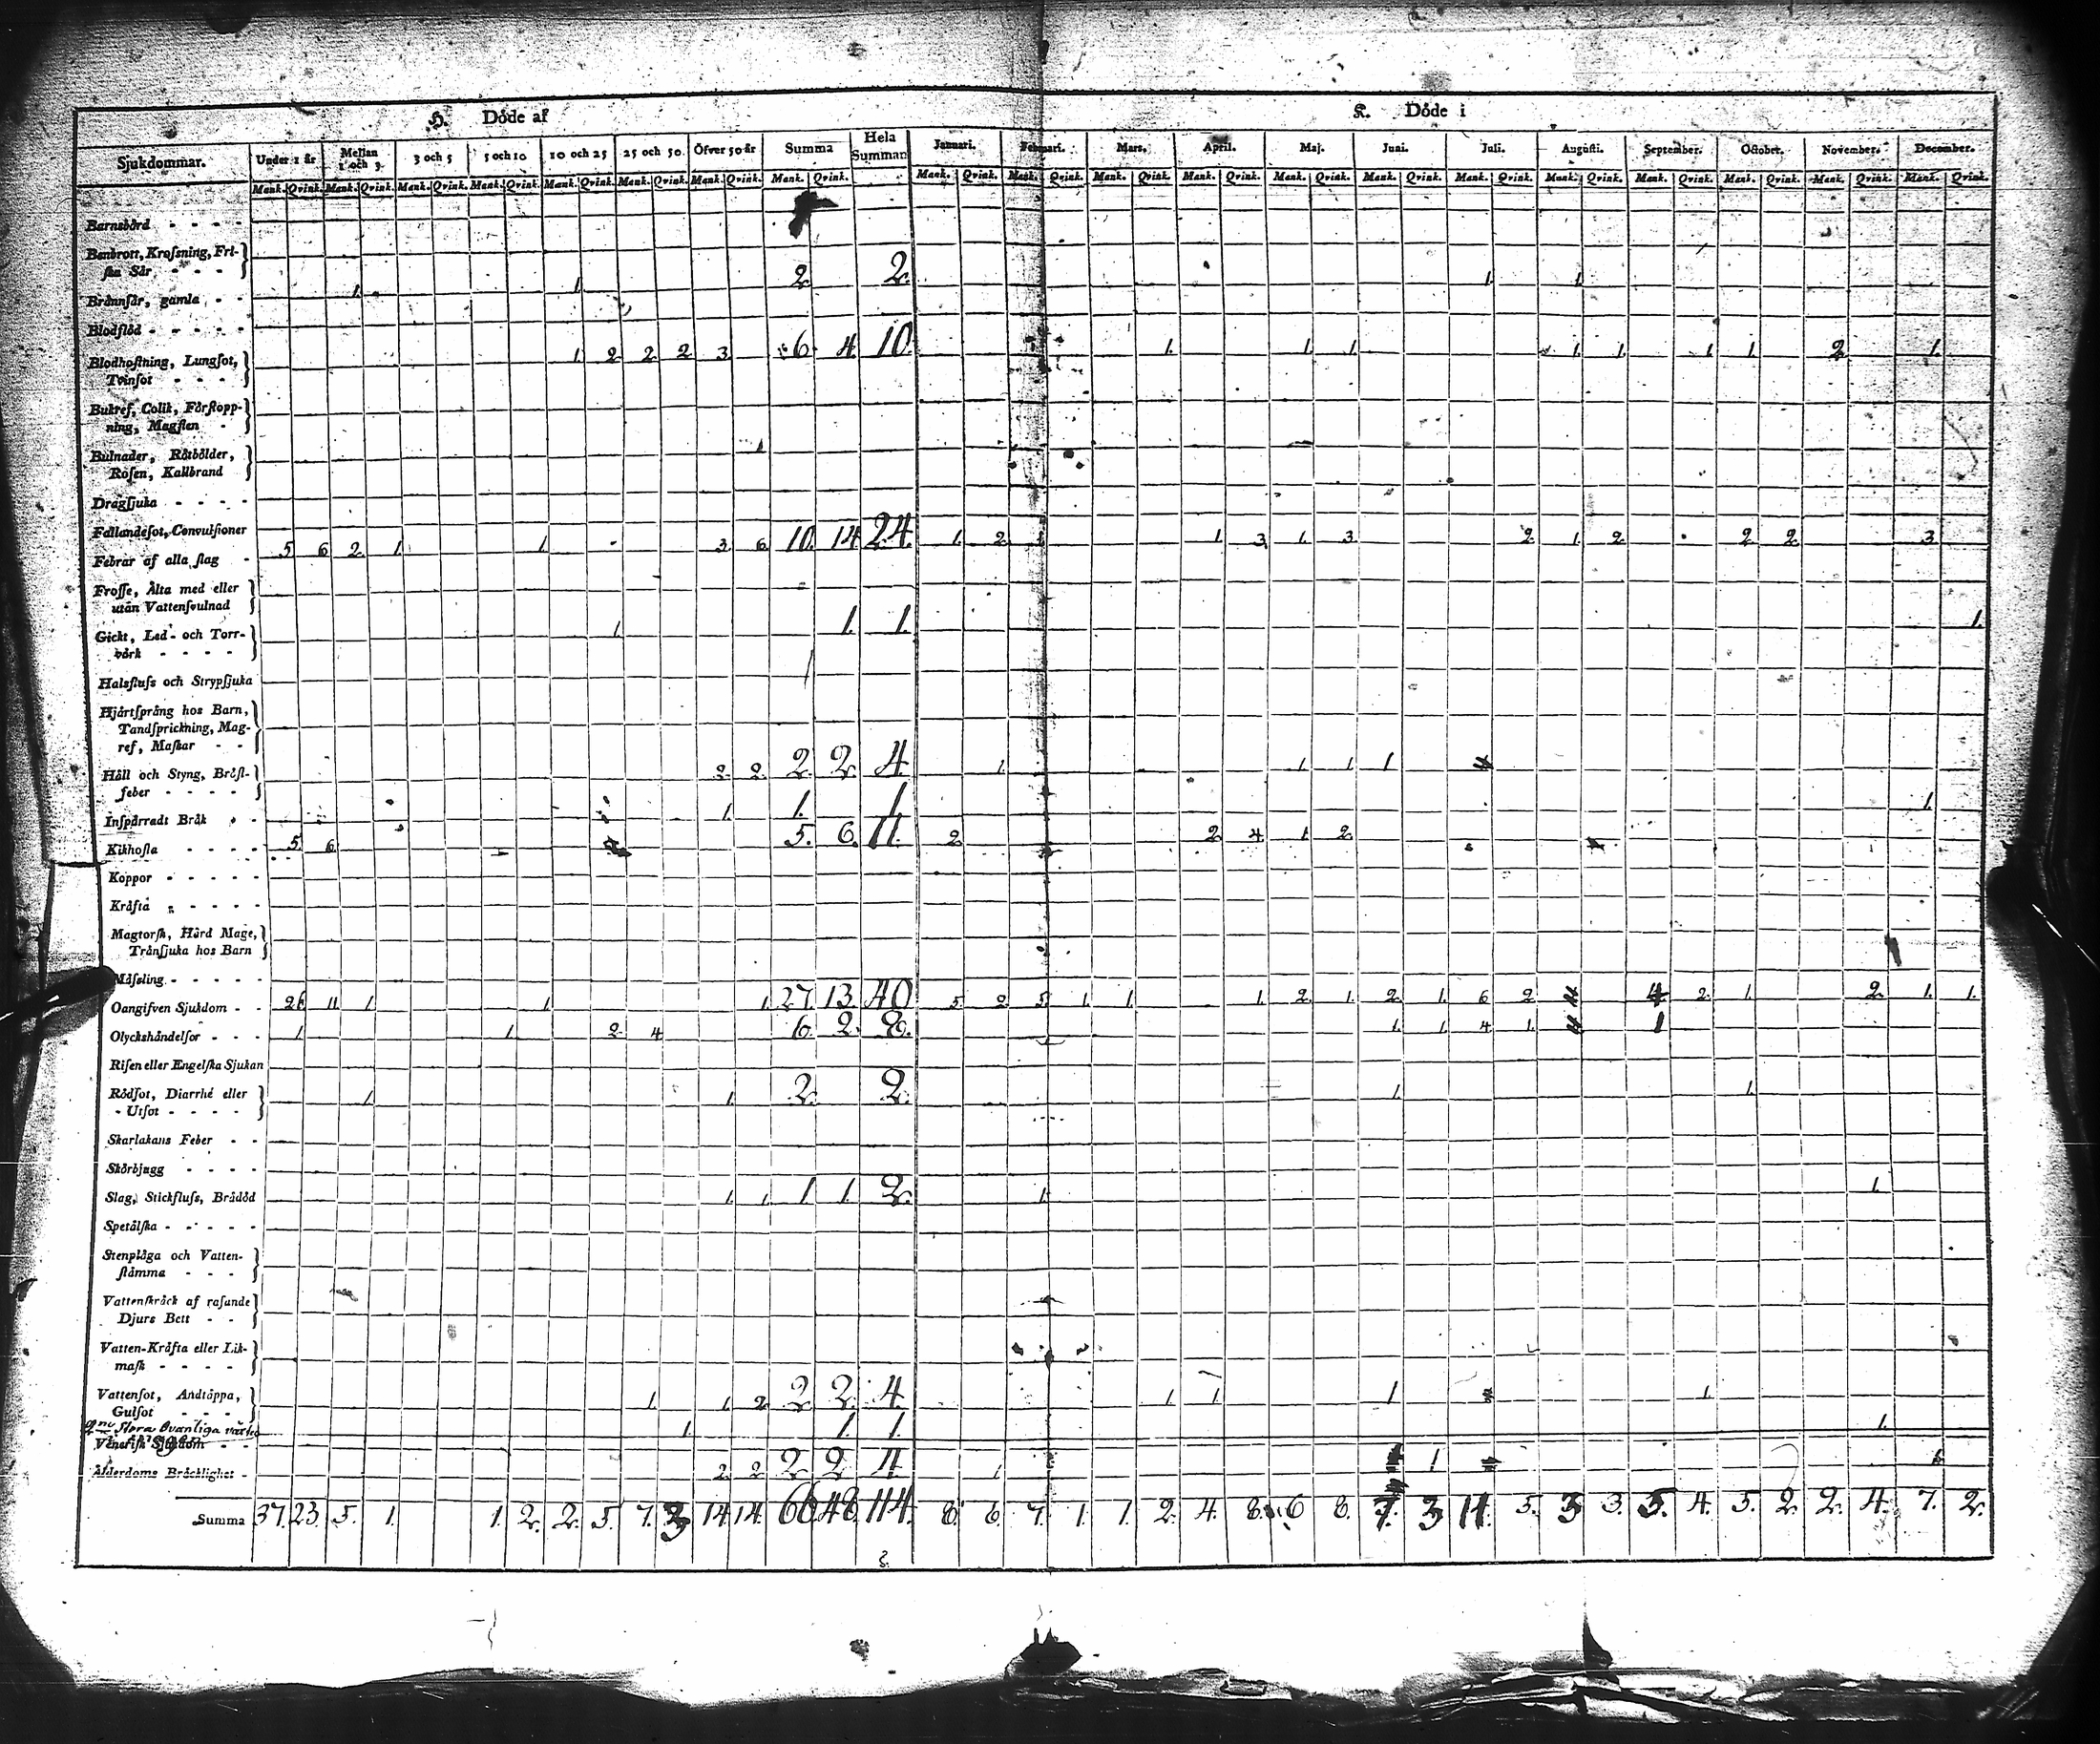 H. Döde af K. Döde i
Sjukdommar. Under 1 år Mellan 1 och 3. 3 och 5 5 och 10 10 och 25 25 och 50. Öfver 50 år Summa Hela Summan Januari. Februari. Mars. April. Maj. Juni. Juli. Augusti. September. October. November. December.
Mank. Qvink. Mank. Qvink. Mank. Qvink. Mank. Qvink. Mank. Qvink. Mank. Qvink. Mank. Qvink. Mank. Qvink. Mank. Qvink. Mank. Qvink. Mank. Qvink. Mank. Qvink. Mank. Qvink. Mank. Qvink. Mank. Qvink. Mank. Qvink. Mank. Qvink. Mank. Qvink. Mank. Qvink. Mank. Qvink.
Barnsbörd - - - -
Benbrott, Krossning, Fri-
ska Sår, - - - 1. 1. 2. 2. 1. 1.
Brännsår, gamla - -
Blodflöd - - - - -
Blodhostning, Lungsot, 1. 2. 2. 2. 3. 6. 4. 10. 1. 1. 1. 1. 1. 1. 1. 2. 1.
Tvinsot - - - -
Bukref, Colik, Förstopp-
ning, Magsten -
Bulnader, Rötbölder,
Rosen, Kallbrand
Dragsjuka - - - -
Fallandesot, Convulsioner
Febrar af alla slag - 5. 6. 2. 1. 1. 3. 6. 10. 14. 24. 1. 2. 1. 1. 3. 1. 3. 2. 1. 2. 2. 2. 3.
Frosse, Älta med eller
utan Vattensvulnad
Gickt, Led- och Torr- 1. 1. 1. 1.
värk - - - -
Halsfluss och Strypsjuka
Hjärtsprång hos Barn,
Tandsprickning, Mag-
ref, Maskar - -
Håll och Styng, Bröst- 2. 2. 2. 2. 4. 1. 1. 1. 1.
feber - - - -
Inspärradt Bråk - - 1. 1. 1. 1.
Kikhosta - - - - 5. 6. 5. 6. 11. 2. 2. 4. 1. 2.
Koppor - - - - -
Kräfta - - - - -
Magtorsk, Hård Mage,
Trånsjuka hos Barn
Mässling - - - - -
Oangifven Sjukdom - - 26. 11. 1. 1. 1. 27. 13. 40. 5. 2. 5. 1. 1. 1. 2. 1. 2. 1. 6. 2. 4. 2. 1. 2. 1. 1.
Olyckshändelser - - - 1. 1. 2. 4. 6. 2. 8. 1. 1. 4. 1. 1
Risen eller Engelska Sjukan
Rödsot, Diarrhé eller 1. 1. 2. 2. 1. 1.
Utsot - - - -
Skarlakans Feber - -
Skörbjugg - - - -
Slag, Stickfluss, Brådöd 1. 1. 1. 1. 2. 1. 1.
Spetälska - - - - -
Stenplåga och Vatten-
stämma - - -
Vattenskräck af rasande
Djurs Bett - -
Vatten-Kräfta eller Lik-
mask - - - -
Vattensot, Andtäppa, 1. 1. 2. 2. 2. 4. 1. 1. 1. 1.
Gulsot - - -
Stora Ovanliga 1. 1. 1. 1.
Venerisk Sjukdom - -
Ålderdoms Bräcklighet - 2. 2. 2. 2. 4. 1. 1
Summa 37. 23. 5. 1. 1. 2. 2. 5. 7. 3 14. 14. 66. 48. 114. 8. 6. 7. 1. 1. 2. 4. 8. 6 8. 7. 3 11. 5. 3 3. 5. 4. 5. 2. 2. 4. 7. 2.